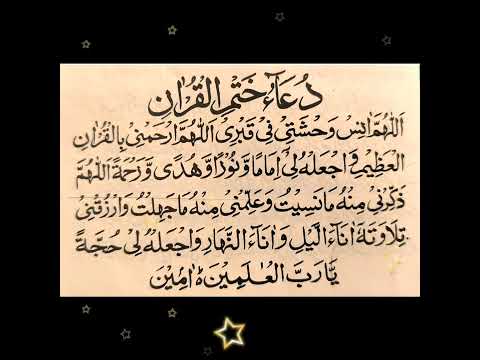 دُعَآءُ خَتْمِ الْقُرْاٰنِ
اَللّٰهُمَّ اٰنِسْ وَحْشَتِيْ فِيْ قَبْرِيْ اَللّٰهُمَّ ارْحَمْنِيْ بِالْقُرْاٰنِ
الْعَظِيْمِ وَاجْعَلْهُ لِيْ اِمَامًا وَّنُوْرًا وَّهُدًى وَّرَحْمَةً اَللّٰهُمَّ
ذَكِّرْنِيْ مِنْهُ مَا نَسِيْتُ وَعَلِّمْنِيْ مِنْهُ مَا جَهِلْتُ وَارْزُقْنِيْ
تِلَاوَتَهٗ اٰنَآءَ الَّيْلِ وَاٰنَآءَ النَّهَارِ وَاجْعَلْهُ لِيْ حُجَّةً
يَّا رَبَّ الْعٰلَمِيْنَ ۝ اٰمِيْنَ